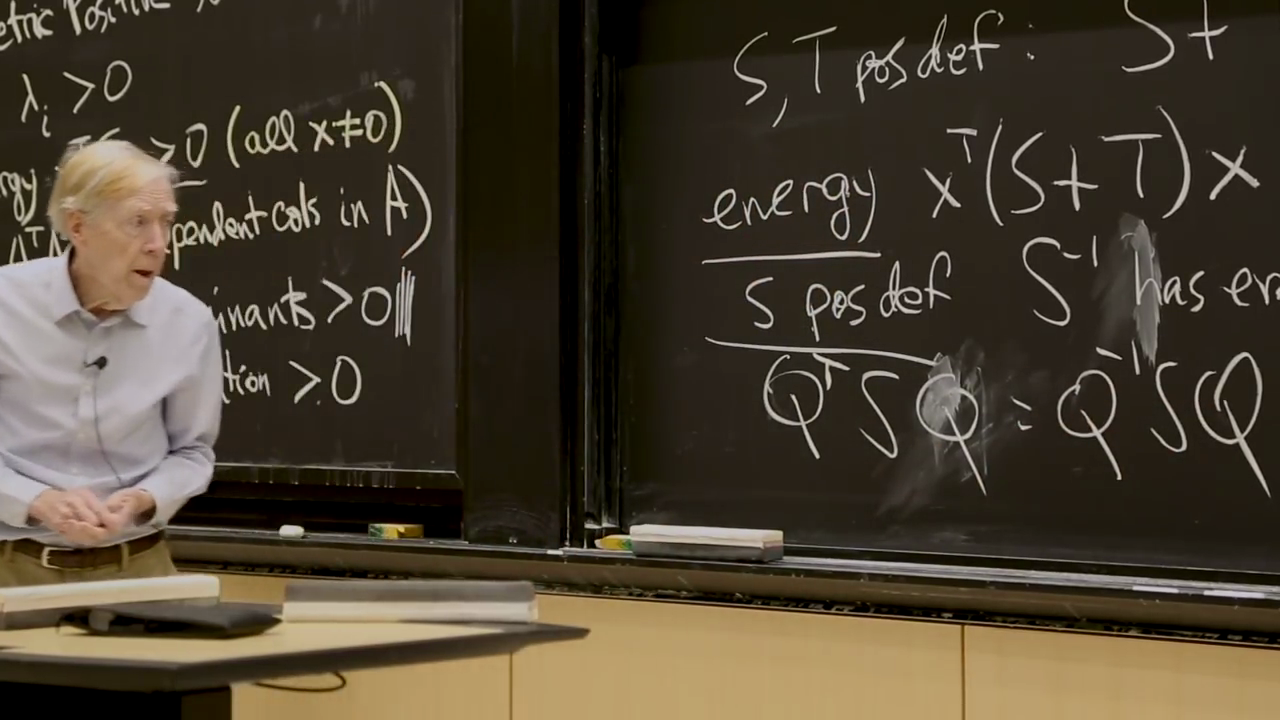 etric Positive
λi >0
>0 (all x≠0)
rgy
AT pendent cols in A)
inants >0
tion >0
S, T pos def : S+
energy xT(S+T)x
S pos def S-1 has
QTSQ = Q-1SQ